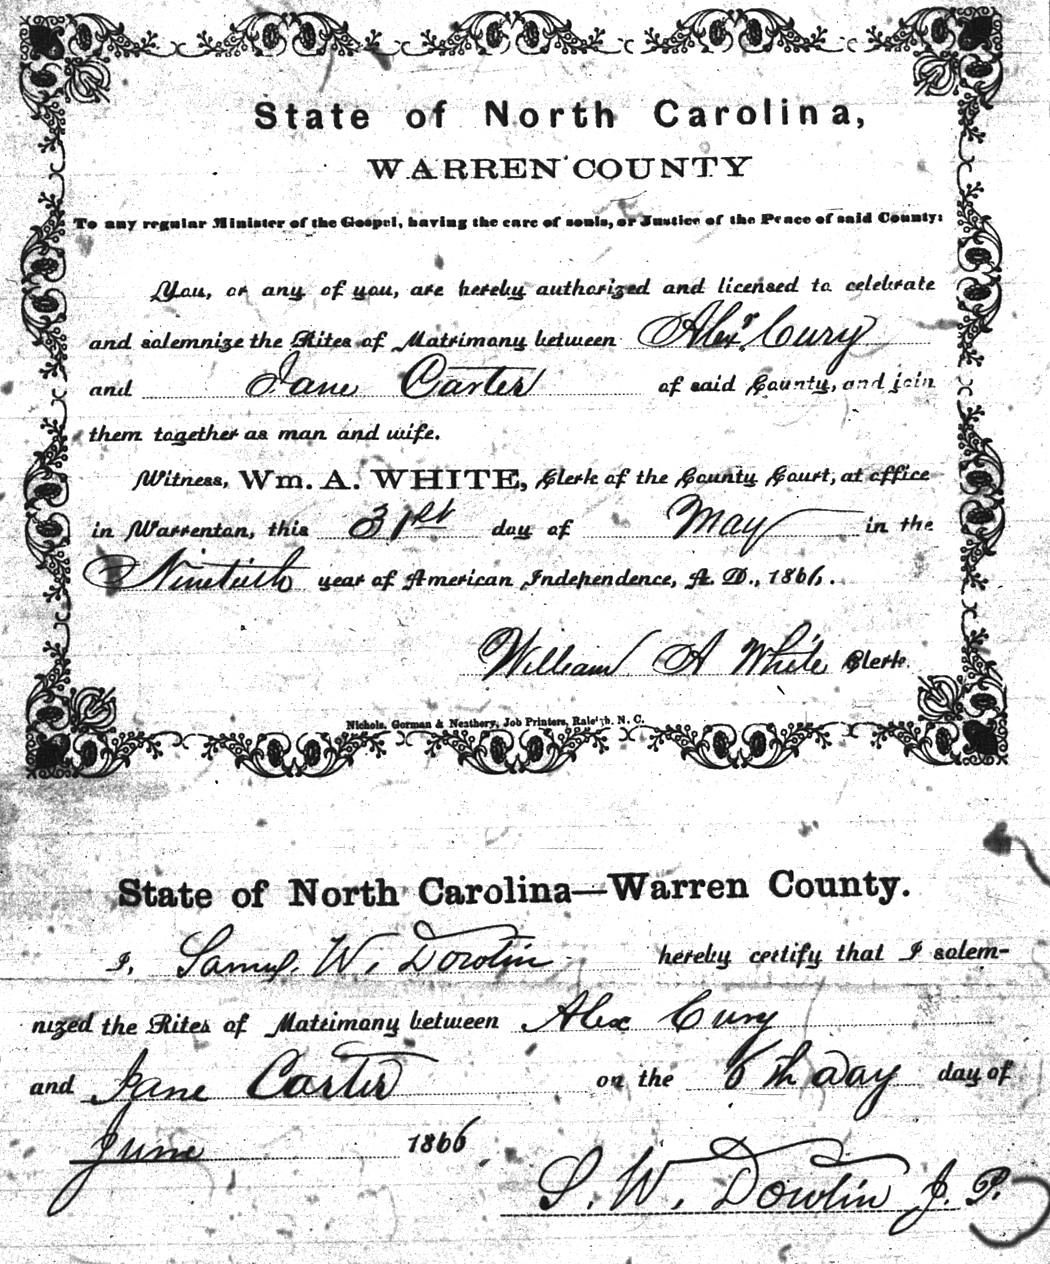 State of North Carolina,
WARREN COUNTY
To any regular Minister of the Gospel, having the care of souls, or Justice of the Peace of said County:
You, or any of you, are hereby authorized and licensed to celebrate
and solemnize the Rites of Matrimony between Alexr. Cury
and Jane Carter of said County, and join
them together as man and wife.
Witness, Wm. A. WHITE, Clerk of the County Court, at office
in Warrenton, this 31st day of May in the
Ninetieth year of American Independence, A. D., 1866.
William A White Clerk.
Nichols, Gorman & Neathery, Job Printers, Raleigh, N. C.
State of North Carolina—Warren County.
I, Samul. W. Dowtin hereby certify that I solem-
nized the Rites of Matrimony between Alex Cury
and Jane Carter on the 6th day day of
June 1866
S. W. Dowtin J. P.